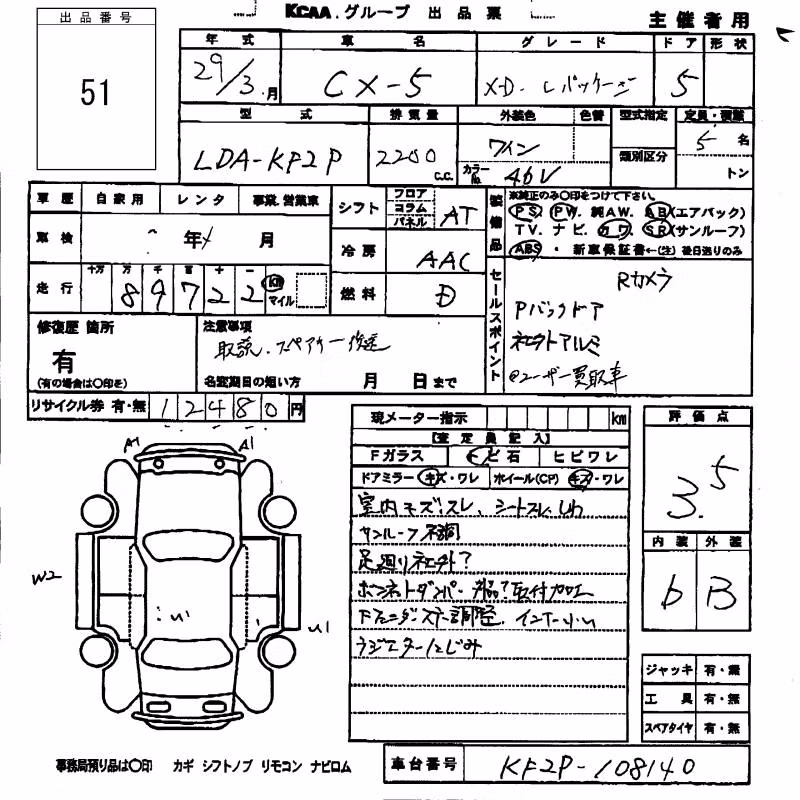 KCAA.グループ 出品票
主催者用
出品番号
51
年式 車名 グレード ドア 形状
29/3 月 CX-5 XD. Lパッケージ 5
型式 排気量 外装色 色替 型式指定 定員・積載
LDA-KF2P 2200 c.c. ワイン 類別区分 5 名
カラーNo. 46V トン
車歴 自家用 レンタ 事業.営業車
シフト フロア コラム パネル AT
装備品 ※純正のみ〇印をつけて下さい。
PS. PW. 純AW. AB(エアバック)
TV. ナビ. カワ. SR(サンルーフ)
ABS ・ 新車保証書←(注) 後日送りのみ
車検 年 月
冷房 AAC
走行 十万 万 千 百 十 一
89722 km マイル
燃料 D
セールスポイント
Rカメラ
Pバックドア
社外アルミ
@ユーザー買取車
修復歴 箇所
有
(有の場合は〇印を)
注意事項
取説.スペアキー後送
名変期日の短い方 月 日まで
リサイクル券 有・無 12480円
現メーター指示 km
【査定員記入】
Fガラス ヒビ石 ヒビワレ
ドアミラー キズ・ワレ ホイール(CP) キズ・ワレ
室内キズ.スレ、シートスレ.しわ
サンルーフ不調
足廻り社外?
ボンネットダンパー. 外品?取付加工
インナー
ラジエターにじみ
評価点
3.5
内装 外装
b B
A1 A1
W2
U1
ジャッキ 有・無
工具 有・無
スペアタイヤ 有・無
事務局預り品は〇印 カギ シフトノブ リモコン ナビロム
車台番号 KF2P-108140